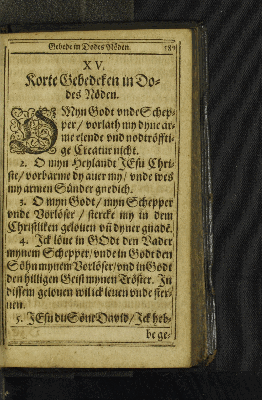 Gebede in Dodes Nöden.
XV.
Korte Gebedeken in Do-
des Nöden.
O Myn Godt vnde Schep-
per / vorlath my dyne ar-
me elende vnd nodtröffti-
ge Creatur nicht.
2. O myn Heylandt JEsu Chri-
ste / vorbarme dy auer my / vnde wes
my armen Sünder gnedich.
3. O myn Godt / myn Schepper
vnde Vorlöser / stercke my in dem
Christliken gelouen vñ dyner gnade.
4. Ick löue in GOdt den Vader
mynem Schepper / vnde in Godt den
Söhn mynem Vorlöser / vnd in Godt
den hilligen Geist mynen Tröster. In
dissem gelouen wil ick leuen vnde ster-
uen.
5. JEsu du Söne Dauid / Ick heb-
be ge-